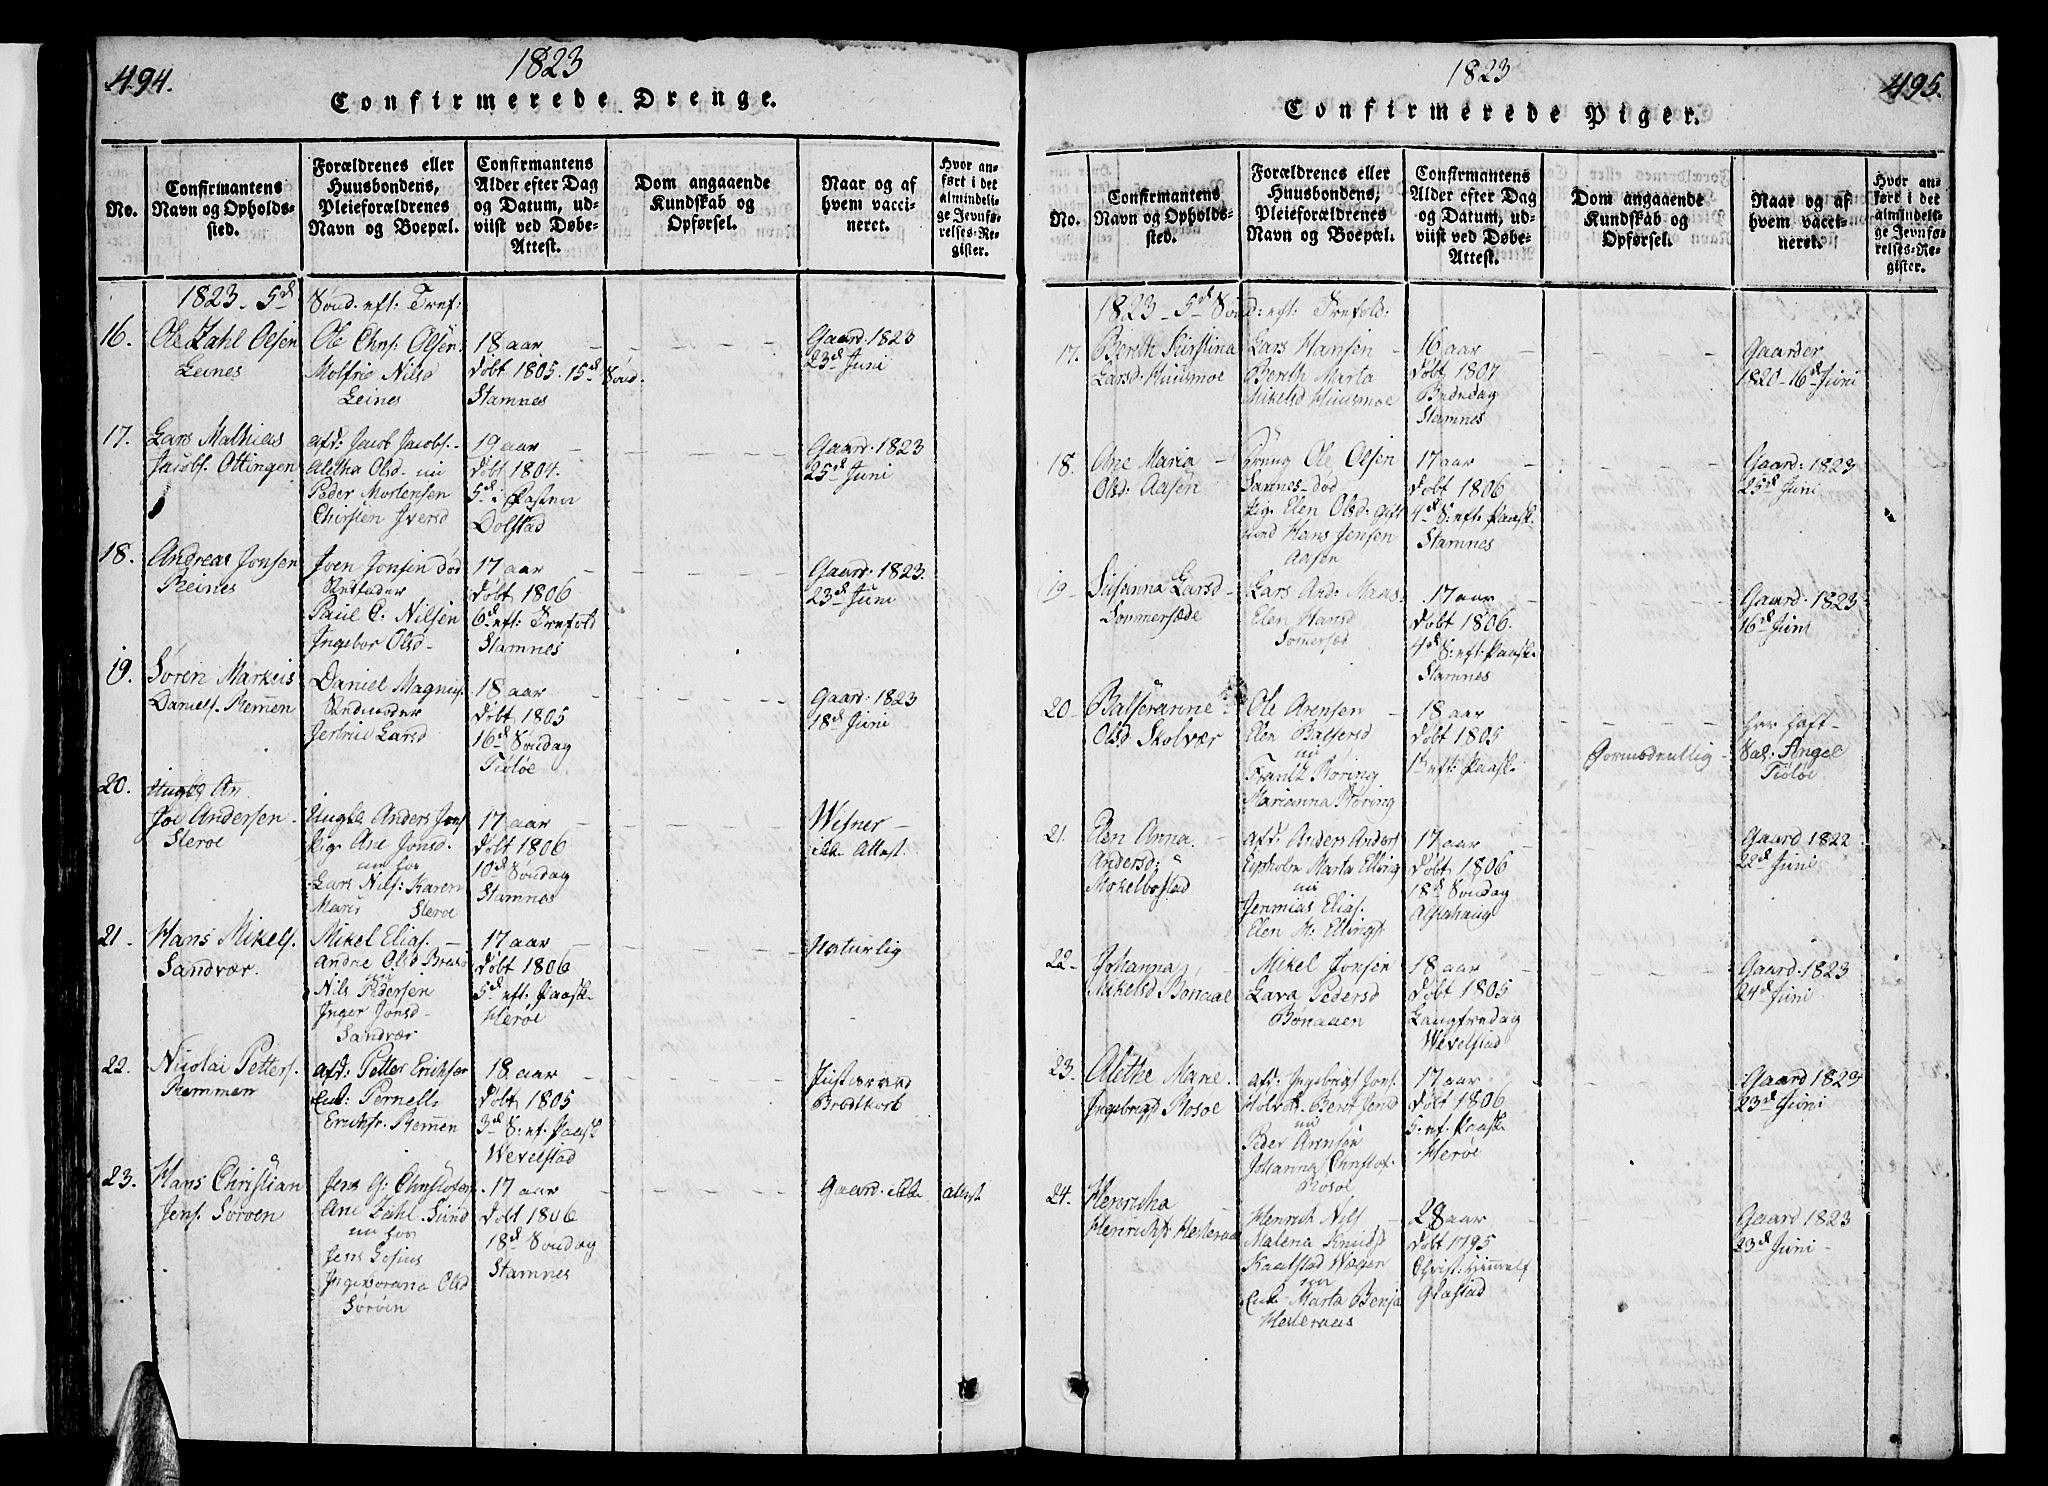 494.
1823
Confirmerede Drenge.
No.
Confirmantens Navn og Opholds-sted.
Forældrenes eller Huusbondens, Pleieforældrenes Navn og Boepæl.
Confirmantens Alder efter Dag og Datum, ud-viist ved Døbe-Attest.
Dom angaaende Kundskab og Opførsel.
Naar og af hvem vacci-neret.
Hvor an-ført i det almindeli-ge Jevnfø-relses-Re-gister.
1823 - 5d Sønd. eft: Tref:
16.
Ole Zahl Olsen
Leines
Ole Chrs: Olsen
Nilsd
Leines
18 aar
døbt 1805. 15d Sønd.
Stamnes
Gaard. 1823
23d Juni
17.
Lars Mathias
Jacobs. Ottingen
afd: Jacob Jacobs.
Aletha Olsd. nu
Peder Mortensen
Chirsten Iversd
19 aar
døbt 1804.
5d i Fasten
Dolstad
Gaard. 1823
25d Juni
18.
Andreas Jonsen
Reines
Joen Jonsen død
Paul C. Nilsen
Ingebor Olsd
17 aar
Døbt 1806
6d eft: Trefold
Stamnes
Gaard. 1823.
23d Juni
19.
Søren Markus
Daniels. Remen
Daniel Magnus.
Larsd
18 aar
Døbt 1805
16d Søndag
Tiøtøe
Gaard. 1823
18d Juni
20.
Joe Andersen
Sleroe
Ungk. Anders Jons
Pig. Ane Jonsd.
nu hos
Lars Nils: Karen
Maris Sleroe
17 aar
Døbt 1806
10d Søndag
Stamnes
Wisner
ikke Attest.
21
Hans Mikels.
Sandvær.
Mikel Elias.
Andrie Olsd
nu
Nils Pedersen
Inger Jonsd
Sandvær
17 aar
Døbt 1806
5d eft. Paask.
Herøe
Naturlig
22.
Nicolai Petters.
Remmen
afd: Petter Eriksen
Enk: Pernell
Eriksr. Remen
18 aar
Døbt 1805
3d S: ef. Paask
Wevelstad
Brodtkorb
23.
Hans Christian
Jens. Sørøen
Jens G: Christofers
Ane Zahl Sund
nu hos
Jens Losius
Ingeborana Olsd
Sørøen
17 aar
døbt 1806
18d Søndag
Stamnes
Gaard. ikke attest
495.
1823
Confirmerede Piger.
No.
Confirmantens Navn og Opholds-sted.
Forældrenes eller Huusbondens, Pleieforældrenes Navn og Boepæl.
Confirmantens Alder efter Dag og Datum, ud-viist ved Døbe-Attest.
Dom angaaende Kundskab og Opførsel.
Naar og af hvem vacci-neret.
Hvor an-ført i det almindeli-ge Jevnfø-relses-Re-gister.
1823 - 5d Sønd: eft: Trefold:
17.
Bereth Kirstina
Larsd. Huusmoe
Lars Hansen
Bereth Marta
Mikelsd Huusmoe
16 aar
døbt 1807
Bededag
Stamnes
Gaarder
1820 - 16d Juni
18.
Ane Maria
Olsd: Aasen
Ole Olsen
død
Pig. Elen Olsd. gift
med Hans Jensen
Aasen
17 aar
døbt 1806
4d S: eft: Paask.
Stamnes
Gaard: 1823
25d Juni
19
Susanna Larsd
Sommersæde
Lars And:
Elen Hansd
Somersæd
17 aar
døbt 1806.
4d S: eft: Paask.
Stamnes
Gaard. 1823
16d Juni
20
Balseranne
Olsd Skolvær
Ole Arensen
Elen Baltsersd
nu
Frantz Røring
Marianna Røring
18 aar
døbt 1805
1d eft: Paask
har haft
Tiøtøe
21.
Elen Anna
Andersd:
Mokelbostad
afd: Anders Anders
Marta Elling
nu
Jeremias Elias.
Elen M: Ellingsd
17 aar
Døbt 1806
18d Søndag
Alstahaug
Gaard 1822
22d Juni
22
Johanna
Mikelsd Bønaae
Mikel Jonsen
Lava Pedersd
Bønaaen
18 aar
døbt 1805
Langfredag
Wevelstad
Gaard. 1823
24d Juni
23.
Alethe Marie
Ingebrigtd Rosøe
afd: Ingebrigt Jons.
Beret Jensd
nu
Peder Arensen
Johanna Christof.
Rosøe
17 aar
Døbt 1806
5: ef. Paask
Herøe
Gaard 1823
23d Juni
24.
Henricka
Henricksd
Henrich Nils
Malena Knuds
Kaalstad Wægen
nu
Enk. Marta Benja
28 aar
døbt 1795
Christ: Himmelf
Gaard 1823
23d Juni